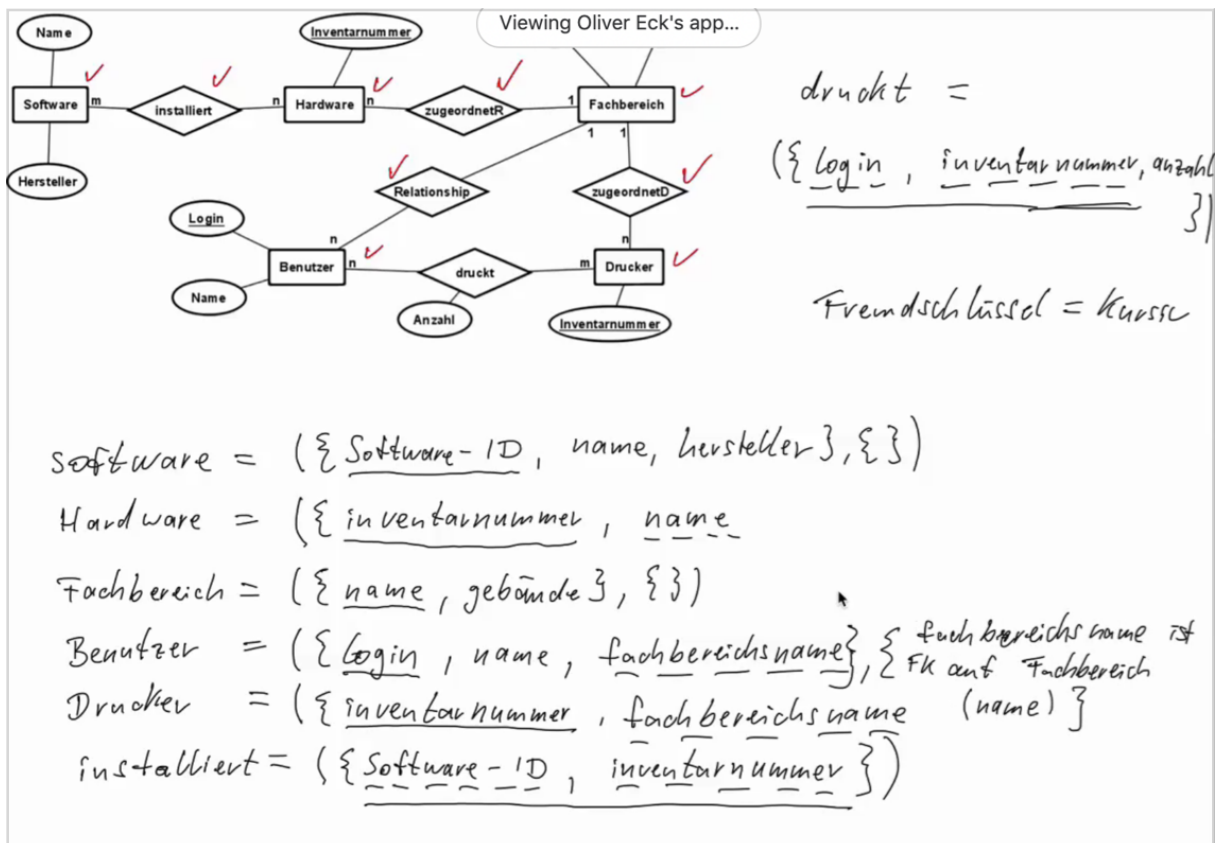 Viewing Oliver Eck's app...
Name
Inventarnummer
Software
m
installiert
n
Hardware
n
zugeordnetR
1
Fachbereich
1
1
Hersteller
Relationship
zugeordnetD
Login
n
n
Benutzer
n
druckt
m
Drucker
Name
Anzahl
Inventarnummer
druckt =
({login, inventarnummer, anzahl
})
Fremdschlüssel =
software = ({Software-ID, name, hersteller}, {})
Hardware = ({inventarnummer, name
Fachbereich = ({name, gebäude}, {})
Benutzer = ({Login, name, fachbereichsname}, {fachbereichsname ist
FK auf Fachbereich
(name)}
Drucker = ({inventarnummer, fachbereichsname
installiert = ({Software-ID, inventarnummer})